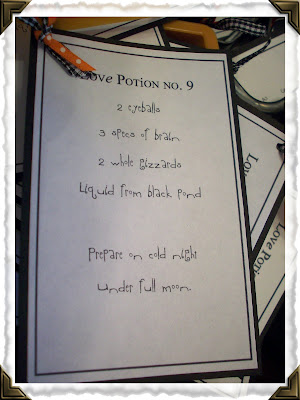 Love Potion no. 9
2 eyeballs
3 specs of brain
2 whole gizzards
Liquid from black pond
Prepare on cold night
under full moon.
Love
Love Potio